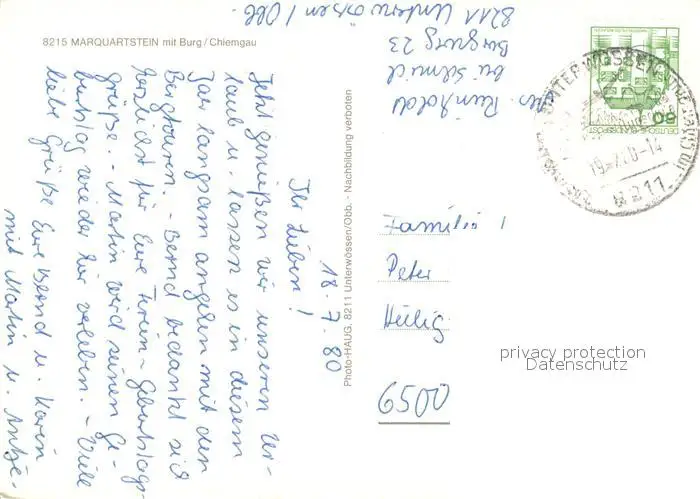 8215 MARQUARTSTEIN mit Burg / Chiemgau
18.7.80
Ihr Lieben!
Jetzt genießen wir unseren Ur-
laub u. lassen es in diesem
Jahr langsam angehen mit den
Bergtouren. - Bernd bedankt sich
herzlichst für Eure Ferien-Geburtstags-
grüße. - Martin wird seinen Ge-
burtstag wieder hier verleben. - Viele
liebe Grüße Eure Bernd u. Karin
mit Martin u. Antje-
Photo-HAUG, 8211 Unterwössen/Obb. - Nachbildung verboten
Reinhold
bei Schmid
Bergweg 23
8211 Unterwössen / Obb.
Familie
Peter
Heilig
6500
60
DEUTSCHE BUNDESPOST
UNTERWÖSSEN
8211
privacy protection
Datenschutz